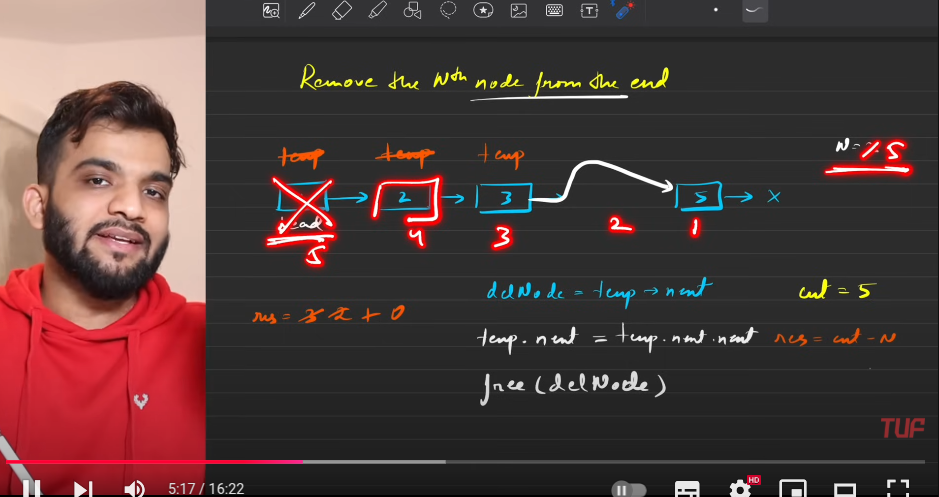 Remove the Nth node from the end
temp temp temp
N = 5
2 3 5 x
head
5 4 3 2 1
delNode = temp → next cnt = 5
res = 3 2 1 0
temp.next = temp.next.next res = cnt - N
free(delNode)
TUF
5:17 / 16:22
HD